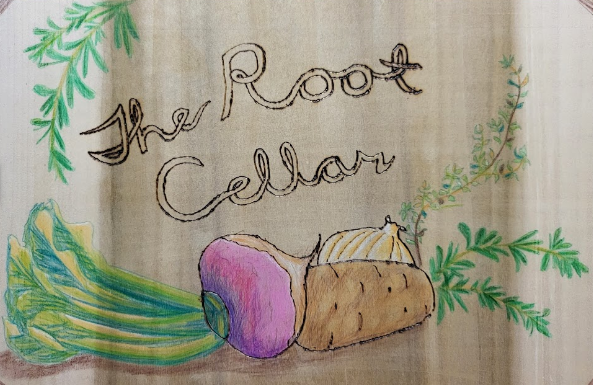 The Root
Cellar